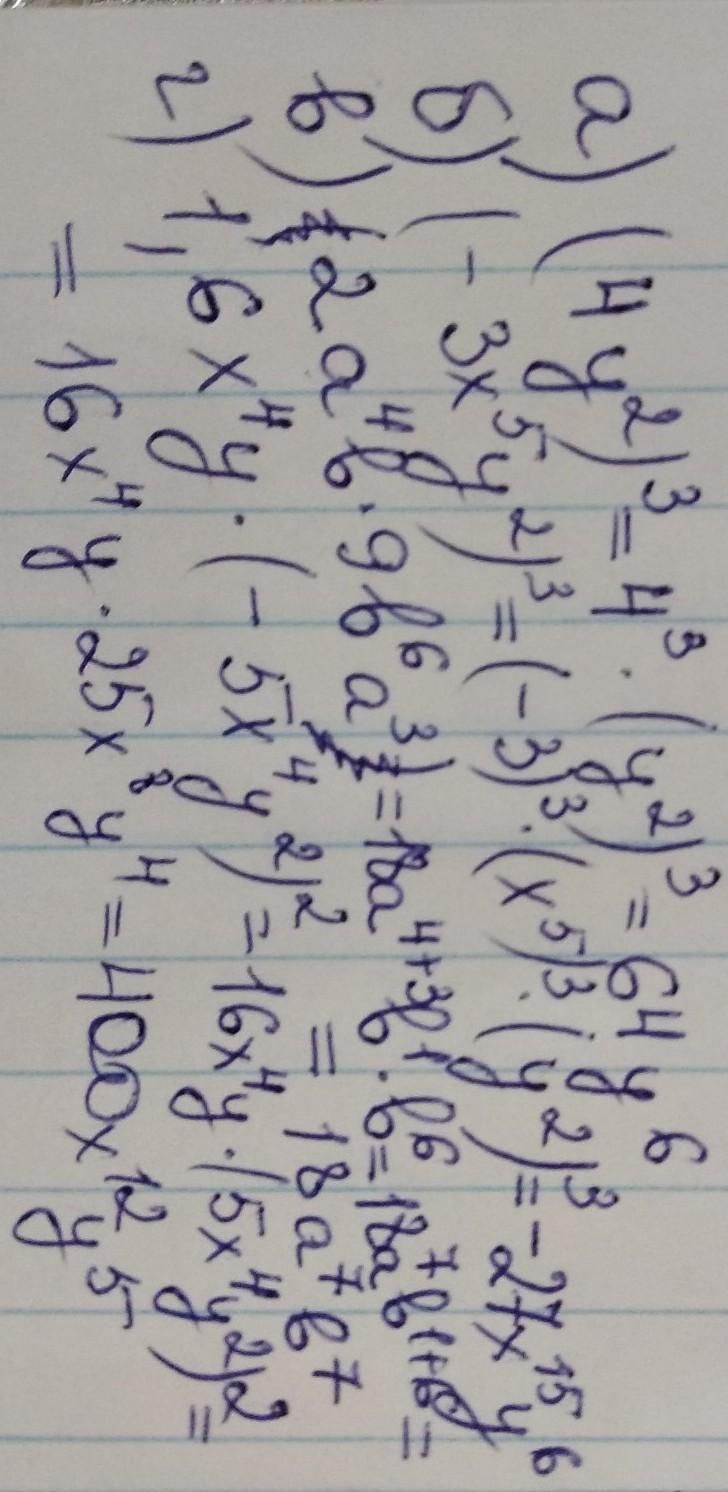 а) (4y²)³ = 4³ · (y²)³ = 64y⁶
б) (-3x⁵y²)³ = (-3)³ · (x⁵)³ · (y²)³ = -27x¹⁵y⁶
в) 2a⁴b · 9b⁶a³ = 18a⁴⁺³b¹ · b⁶ = 18a⁷b¹⁺⁶ =
= 18a⁷b⁷
г) 1,6x⁴y · (-5x⁴y²)² = 16x⁴y · (5x⁴y²)² =
= 16x⁴y · 25x⁸y⁴ = 400x¹²y⁵